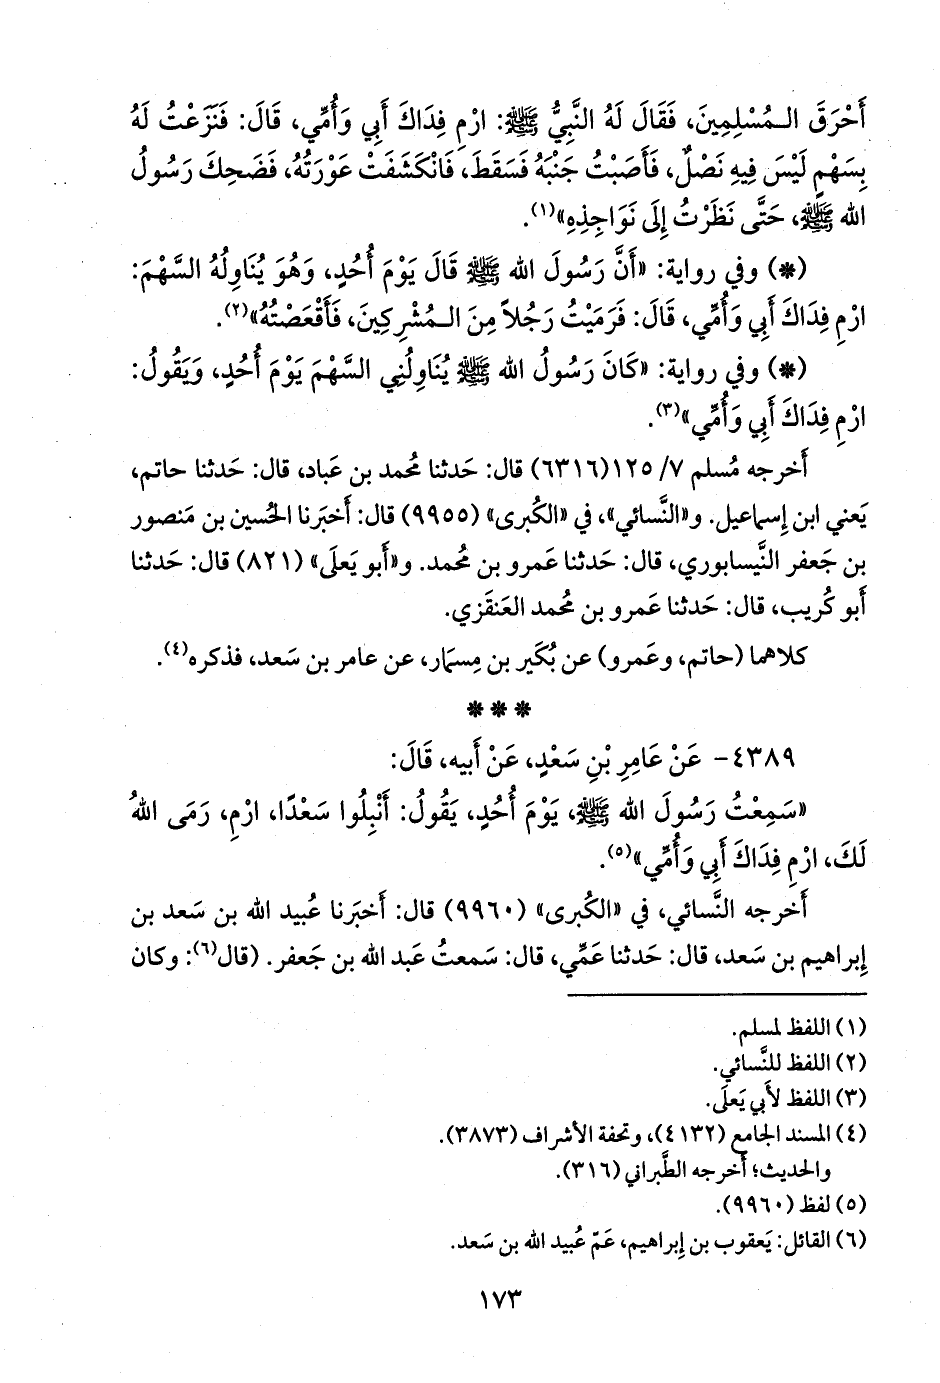 أَحْرَقَ الـمُسْلِمِينَ، فَقَالَ لَهُ النَّبِيُّ ﷺ: ارْمِ فِدَاكَ أَبِي وَأُمِّي، قَالَ: فَنَزَعْتُ لَهُ
بِسَهْمٍ لَيْسَ فِيهِ نَصْلٌ، فَأَصَبْتُ جَنْبَهُ فَسَقَطَ، فَانْكَشَفَتْ عَوْرَتُهُ، فَضَحِكَ رَسُولُ
الله ﷺ، حَتَّى نَظَرْتُ إِلَى نَوَاجِذِهِ»(١).
(*) وفي رواية: «أَنَّ رَسُولَ الله ﷺ قَالَ يَوْمَ أُحُدٍ، وَهُوَ يُنَاوِلُهُ السَّهْمَ:
ارْمِ فِدَاكَ أَبِي وَأُمِّي، قَالَ: فَرَمَيْتُ رَجُلاً مِنَ الـمُشْرِكِينَ، فَأَقْعَصْتُهُ»(٢).
(*) وفي رواية: «كَانَ رَسُولُ الله ﷺ يُنَاوِلُنِي السَّهْمَ يَوْمَ أُحُدٍ، وَيَقُولُ:
ارْمِ فِدَاكَ أَبِي وَأُمِّي»(٣).
أَخرجه مُسلم ٧/ ١٢٥(٦٣١٦) قال: حَدثنا مُحمد بن عَباد، قال: حَدثنا حاتم،
يَعني ابن إِسماعيل. و«النَّسائي»، في «الكُبرى» (٩٩٥٥) قال: أَخبَرنا الحُسين بن مَنصور
بن جَعفر النَّيسابوري، قال: حَدثنا عَمرو بن مُحمد. و«أَبو يَعلَى» (٨٢١) قال: حَدثنا
أَبو كُريب، قال: حَدثنا عَمرو بن مُحمد العَنقَزي.
كلاهما (حاتم، وعَمرو) عن بُكَير بن مِسمار، عن عامر بن سَعد، فذكره(٤).
* * *
٤٣٨٩- عَنْ عَامِرِ بْنِ سَعْدٍ، عَنْ أَبيه، قَالَ:
«سَمِعْتُ رَسُولَ الله ﷺ، يَوْمَ أُحُدٍ، يَقُولُ: أَنْبِلُوا سَعْدًا، ارْمِ، رَمَى اللهُ
لَكَ، ارْمِ فِدَاكَ أَبِي وَأُمِّي»(٥).
أَخرجه النَّسائي، في «الكُبرى» (٩٩٦٠) قال: أَخبَرنا عُبيد الله بن سَعد بن
إِبراهيم بن سَعد، قال: حَدثنا عَمِّي، قال: سَمعتُ عَبد الله بن جَعفر. (قال(٦): وكان
(١) اللفظ لمسلم.
(٢) اللفظ للنَّسائي.
(٣) اللفظ لأَبي يَعلَى.
(٤) المسند الجامع (٤١٣٢)، وتحفة الأشراف (٣٨٧٣).
والحديث؛ أَخرجه الطَّبراني (٣١٦).
(٥) لفظ (٩٩٦٠).
(٦) القائل: يَعقوب بن إِبراهيم، عَمّ عُبيد الله بن سَعد.
١٧٣